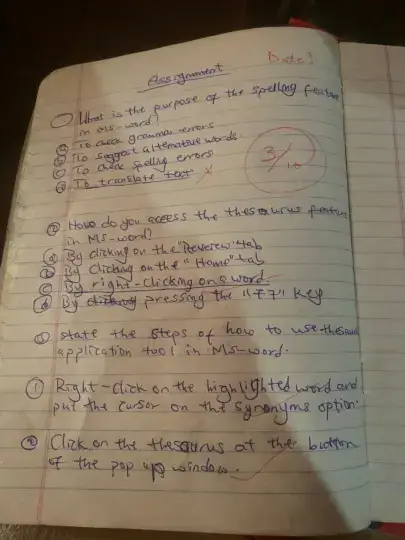 Assignment
Date?
① What is the purpose of the spelling feature
in MS-word?
ⓐ To check grammar errors
ⓑ To suggest alternative words
ⓒ To check spelling errors
ⓓ To translate text ×
3/10
② How do you access the thesaurus feature
in MS-word?
ⓐ By clicking on the "Review" tab
ⓑ By Clicking on the "Home" tab
ⓒ By right-Clicking on a word.
ⓓ By clicking pressing the "F7" key
③ State the steps of how to use thesaurus
application tool in MS-word.
① Right-Click on the highlighted word and
put the cursor on the synonyms option.
② Click on the thesaurus at the button
of the pop up window.